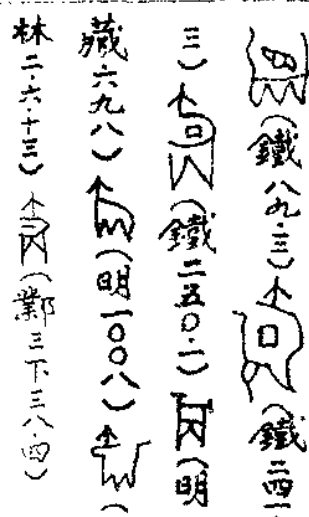 （鐵八九·三）（鐵二四一·
三）（鐵二五〇·一）（明
藏六九八）（明一〇〇八）（
林二·六·十三）（鄴三下三八·四）